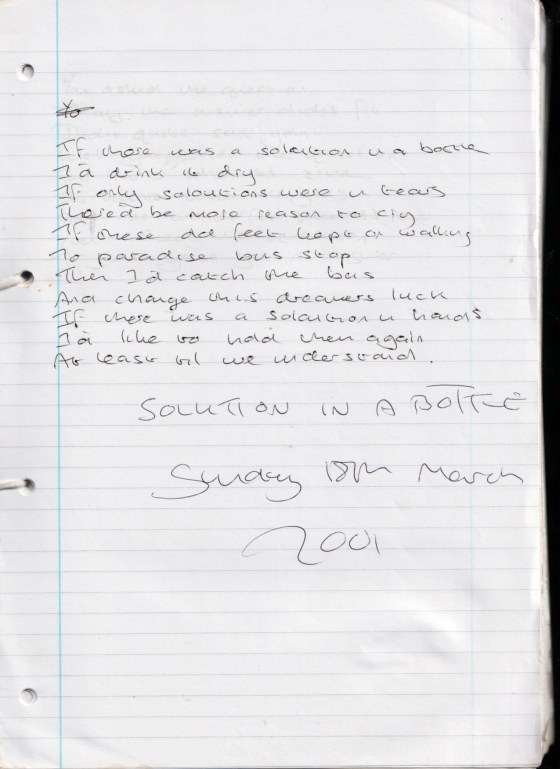 If there was a solution in a bottle
I'd drink it dry
If only soloutions were in tears
There'd be more reason to cry
If these old feet kept on walking
To paradise bus stop
Then I'd catch the bus
And change this dreamers luck
If there was a solution in hands
I'd like to hold them again
At least til we understand.
SOLUTION IN A BOTTLE
Sunday 18th March
2001